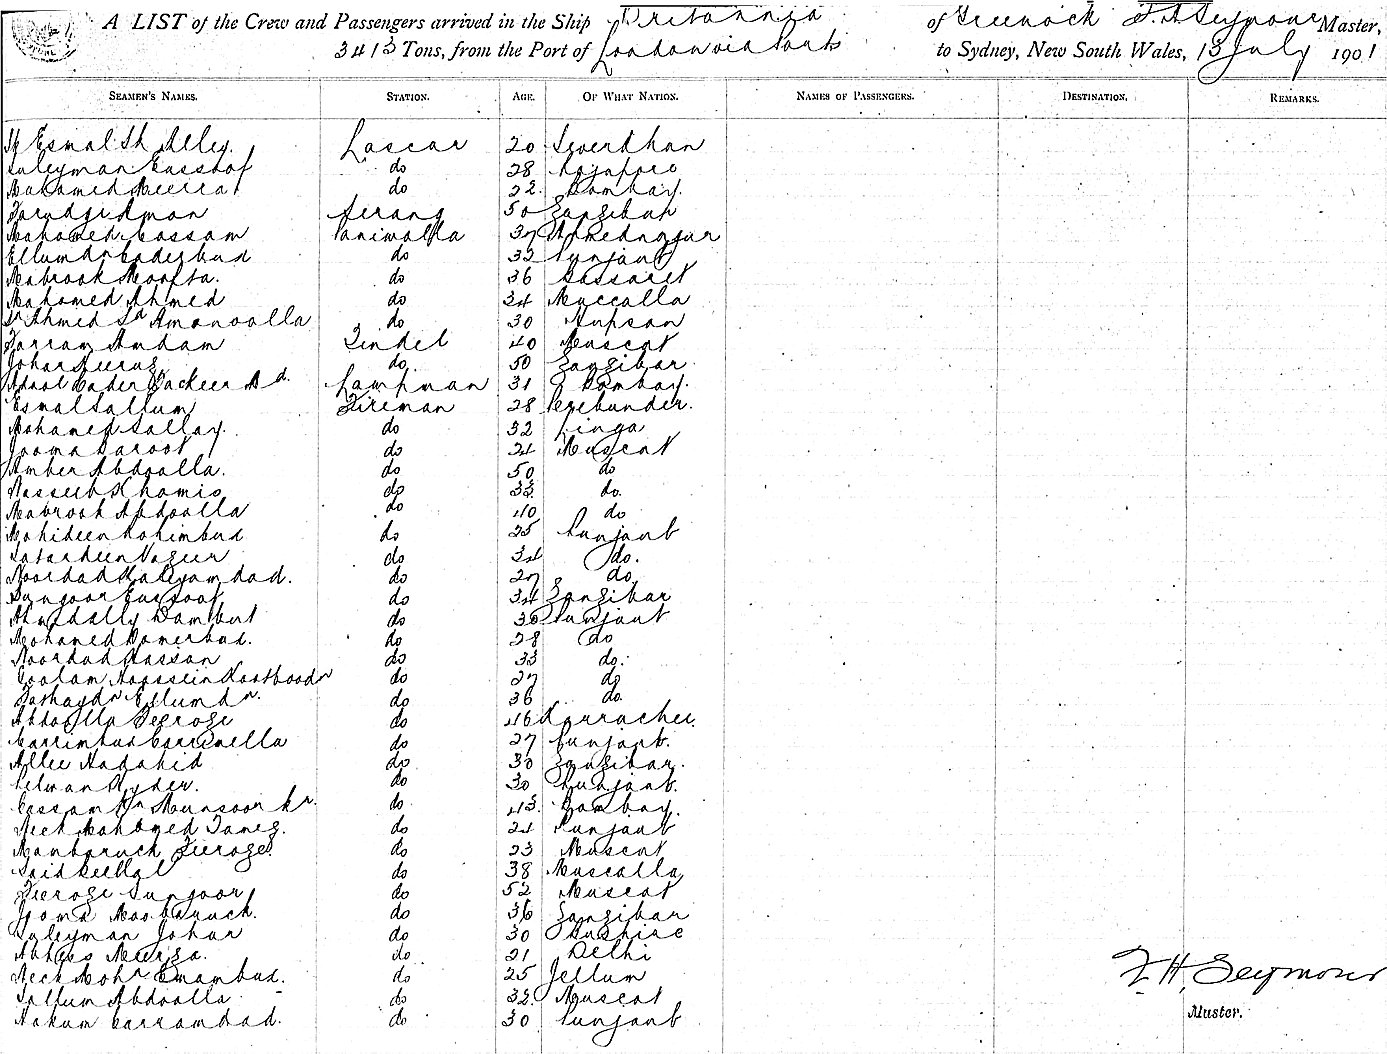 A LIST of the Crew and Passengers arrived in the Ship Britannia of Greenock F. H. Seymour Master,
3413 Tons, from the Port of London via Ports to Sydney, New South Wales, 13 July 1901
SEAMEN'S NAMES. STATION. AGE. OF WHAT NATION. NAMES OF PASSENGERS. DESTINATION. REMARKS.
Esmal Sh Alley. Lascar 20 Severdhan
Suleyman Eusshof do 28 Rajapore
Mahomed Meera do 22. Bombay.
Serang 50 Zanzibar
Mahomed Cassam Paniwalla 37 Ahmednagar
Ellumdn Caderbux do 32 Punjaub
Mabrook Moofta. do 36
Mahomed Ahmed do 34 Maccalla
Sh Ahmed Sd Amanoolla do 30
Farran Andam Tindel 40 Muscat
Johar Feeruz do. 50 Zanzibar.
Abdol Cader Fackeer Ad. Lampman 31 Bombay.
Esmal Sallum Fireman 28 Porebunder.
Mohamed Sallay. do 32 Linga
Jooma Baroot do 24 Muscat
Amber Abdoalla. do 50 do
Nasseeb Khamis do 33. do.
Mabrook Abdoalla do 40 do
Mohideen Rohimbux do 25 Punjaub
Satardeen Vazeer do 34 do.
Noordad do 27 do
Sungoor Eussoof do 34 Zanzibar
do 30 Punjaub
Mohamed do 28 do
Noordad Hassan do 33 do.
Goolam Hoossein do 27 do
Fathaydn Ellumdn. do 36 do.
Abdoalla Feeroze do 46 Kurrachee.
Carrimbux Carrimella do 27 Punjaub.
Allee do. 30 Zanzibar.
do 30 Punjaub.
Cassam Kn Munsoor kr. do. 43. Bombay.
Neck Mahomed do 24 Punjaub
Mamboruck Feeroze. do 23 Muscat
Said do 38 Maccalla
Feeroze Sungoor do 52 Muscat
Jooma Mooburuck. do 36 Zanzibar
Suleyman Johar do 30 Bushire
Abbas Meerza. do 21 Delhi
Neck Mohd Emambux. do 25 Jellum
Sallum Abdoalla do 32. Muscat
Hakum Carramdad. do 30 Punjaub
F. H. Seymour
Master.